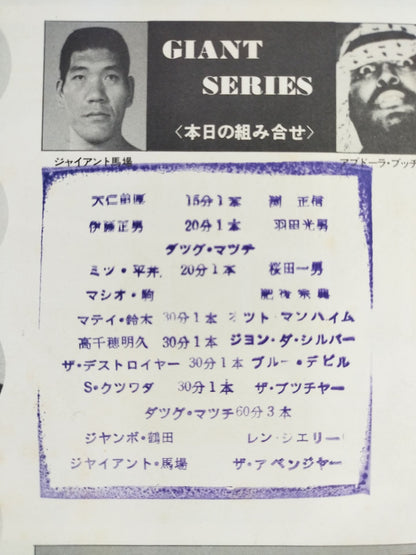 GIANT
SERIES
〈本日の組み合せ〉
ジャイアント馬場
アブドーラ・ブッチ
大仁田厚 15分1本 渕 正信
伊藤正男 20分1本 羽田光男
タッグ・マッチ
ミツ・平井 20分1本 桜田一男
マシオ・駒 肥後宗典
マティ・鈴木 30分1本 オットー・マンハイム
高千穂明久 30分1本 ジョン・ダ・シルバー
ザ・デストロイヤー 30分1本 ブルー・デビル
S・クツワダ 30分1本 ザ・ブッチャー
タッグ・マッチ60分3本
ジャンボ・鶴田 レン・シエリー
ジャイアント・馬場 ザ・アベンジャー